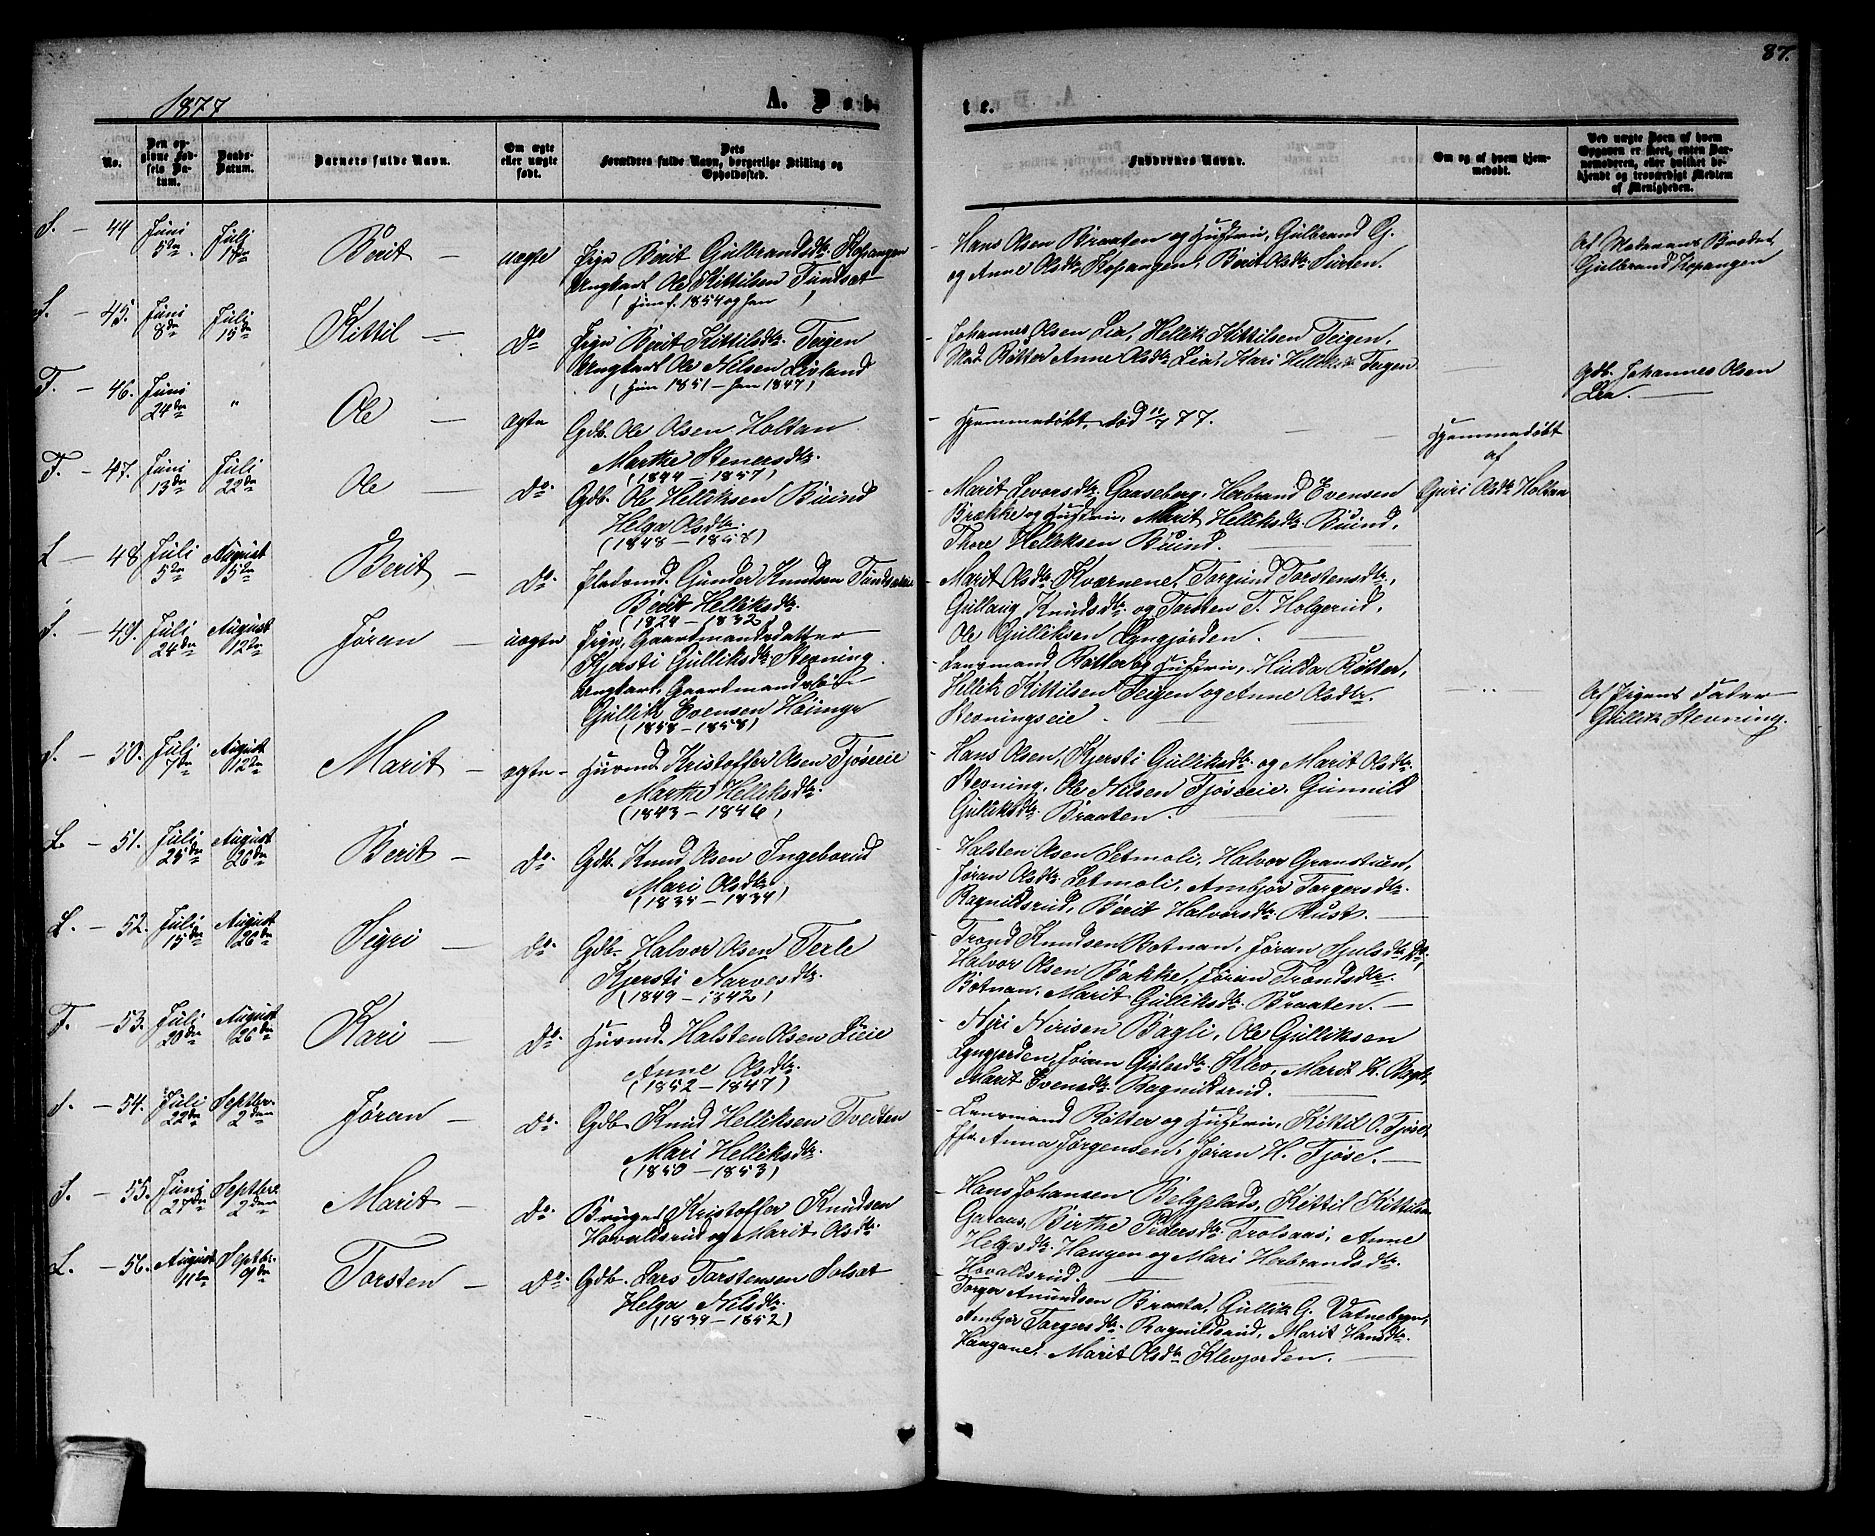 87.
1877
A. Døb
te.
No.
Den opgivne Fødsels Datum.
Daabs-Datum.
Barnets fulde Navn.
Om ægte eller uægte født.
Dets Forældres fulde Navn, borgerlige Stilling og Opholdssted.
Faddernes Navne.
Om og af hvem hjemmedøbt.
Ved uægte Børn af hvem Opgaven er skeet, enten Barnemoderen, eller hvilket bekjendt og troværdigt Medlem af Menigheden.
S. – 44 Juni 5te Juli 1ste Berit – uægte Pige Berit Gulbrandsdtr. Kopangen
Ungkarl Ole Kittilsen Tundsæt
(hun f. 1854 og han )
Hans Olsen Braaten og Hustru, Gulbrand G.
og Anne Olsdtr Kopangen, Berit Olsdtr
Af Moderens Broder
Gulbrand Kopangen
S. – 45. Juni 8de Juli 15de Kittil – do Pige Berit Kittilsdtr. Teigen
Ungkarl Ole Nilsen Livland
(hun 1851 – han 1847)
Johannes Olsen Lia, Hellik Kittilsen Teigen,
Mad. Røtter Anne Olsdtr Lia, Kari Helliksdtr Teigen
Gdb. Johannes Olsen
Lia.
F. – 46. Juni 24de " Ole – ægte Gdb. Ole Olsen Holtan
Marthe Stenersdtr.
(1844 – 1857)
Hjemmedøbt, død 11/7 77.
Hjemmedøbt
af
Guri Olsdtr Holtan
F. – 47. Juni 13de Juli 22de Ole – do. Gdb. Ole Helliksen Buind
Helga Olsdtr.
(1848 – 1858)
Marit Levorsdtr. Gaaseberg, Herbrand Evensen
Brække og Hustru, Marit Helliksdtr. Buind,
Thore Helliksen Buind.
L – 48. Juli 5te August 5te Berit – do. Gunder Knudsen
Berit Helliksdtr.
(1824 – 1832)
Marit Olsdtr. Kværnene, Torgund Torstensdtr,
Gullaug Knudsdtr og Torsten T. Holgerud,
Ole Gulliksen Lyngjorden.
S. – 49. Juli 28de August 12te Jøran – uægte Pige, Gaardmandsdatter
Kjersti Gulliksdtr Stevning.
Ungkarl, Gaardmandssøn
Gullik Evensen
(1858 – 1858)
Lensmand Røtter og Hustru, Hulda Røtter,
Hellik Kittilsen Teigen og Anne Olsdtr.
Stevningseie.
Af Pigens Fader
Gullik Stevning.
S. – 50. Juli 7de August 12te Marit – ægte – Husmd. Kristoffer Olsen Tjøseeie
Marthe Helliksdtr.
(1843 – 1846)
Hans Olsen, Kjersti Gulliksdtr og Marit Olsdtr.
Stevning, Ole Nilsen Tjøseeie, Gunnild
Gulliksdtr. Braaten.
L – 51. Juli 25de August 26de Berit – do. Gdb. Knud Olsen Ingeborud
Mari Olsdtr
(1834 – 1834)
Halsten Olsen Setmoli, Halvor Granstuen,
Jøran Olsdtr Setmoli, Ambjør Torgersdtr.
Ragnildsrud, Berit Halvorsdtr. Rust.
L. – 52. Juli 15de August 26de Sigri – do. Gdb. Halvor Olsen Terle
Kjersti Narvesdtr.
(1849 – 1842)
Trond Knudsen Botnan, Jøran Hjulsdtr do,
Halvor Olsen Bakke, Jøran Trondsdtr.
Botnan, Marit Gulliksdtr. Braaten.
F. – 53. Juli 20de August 26de Kari – do. Husmd. Halsten Olsen Lieie
Anne Olsdtr.
(1852 – 1847)
Niri Nirisen Bagli, Ole Gulliksen
Lyngjorden, Jøran Gislesdtr. Klev,
Marit Evensdtr. Ragnildsrud.
S. – 54. Juli 22de Septbr. 2den Jøran – do. Gdb. Knud Helliksen Tveiten
Mari Helliksdtr.
(1850 – 1853)
Lensmand Røtter og Hustru, Kittil O. Tjøse,
Frk. Anna Jørgensen, Jøran H. Tjøse.
S. – 55. Juni 27de Septbr. 2den Marit – do. Bruger Kristoffer Knudsen
Hovaldsrud og Marit Olsdtr.
Hans Johansen Belgplads, Kittil Kittilsen
Garaas, Birthe Pedersdtr. Trolsaas, Anne
Helgesdtr. Haugen og Mari Herbrandsdtr.
Hovaldsrud.
L. – 56. August 11te Septbr. 9de Torsten – do. Gdb. Lars Torstensen Solsæt
Helga Nilsdtr.
(1834 – 1852)
Torger Amundsen Braata, Gullik G. Vatnebryn,
Ambjør Torgersdtr. Ragnildsrud, Marit Hansdtr.
Haugane, Marit Olsdtr Klevjorden.